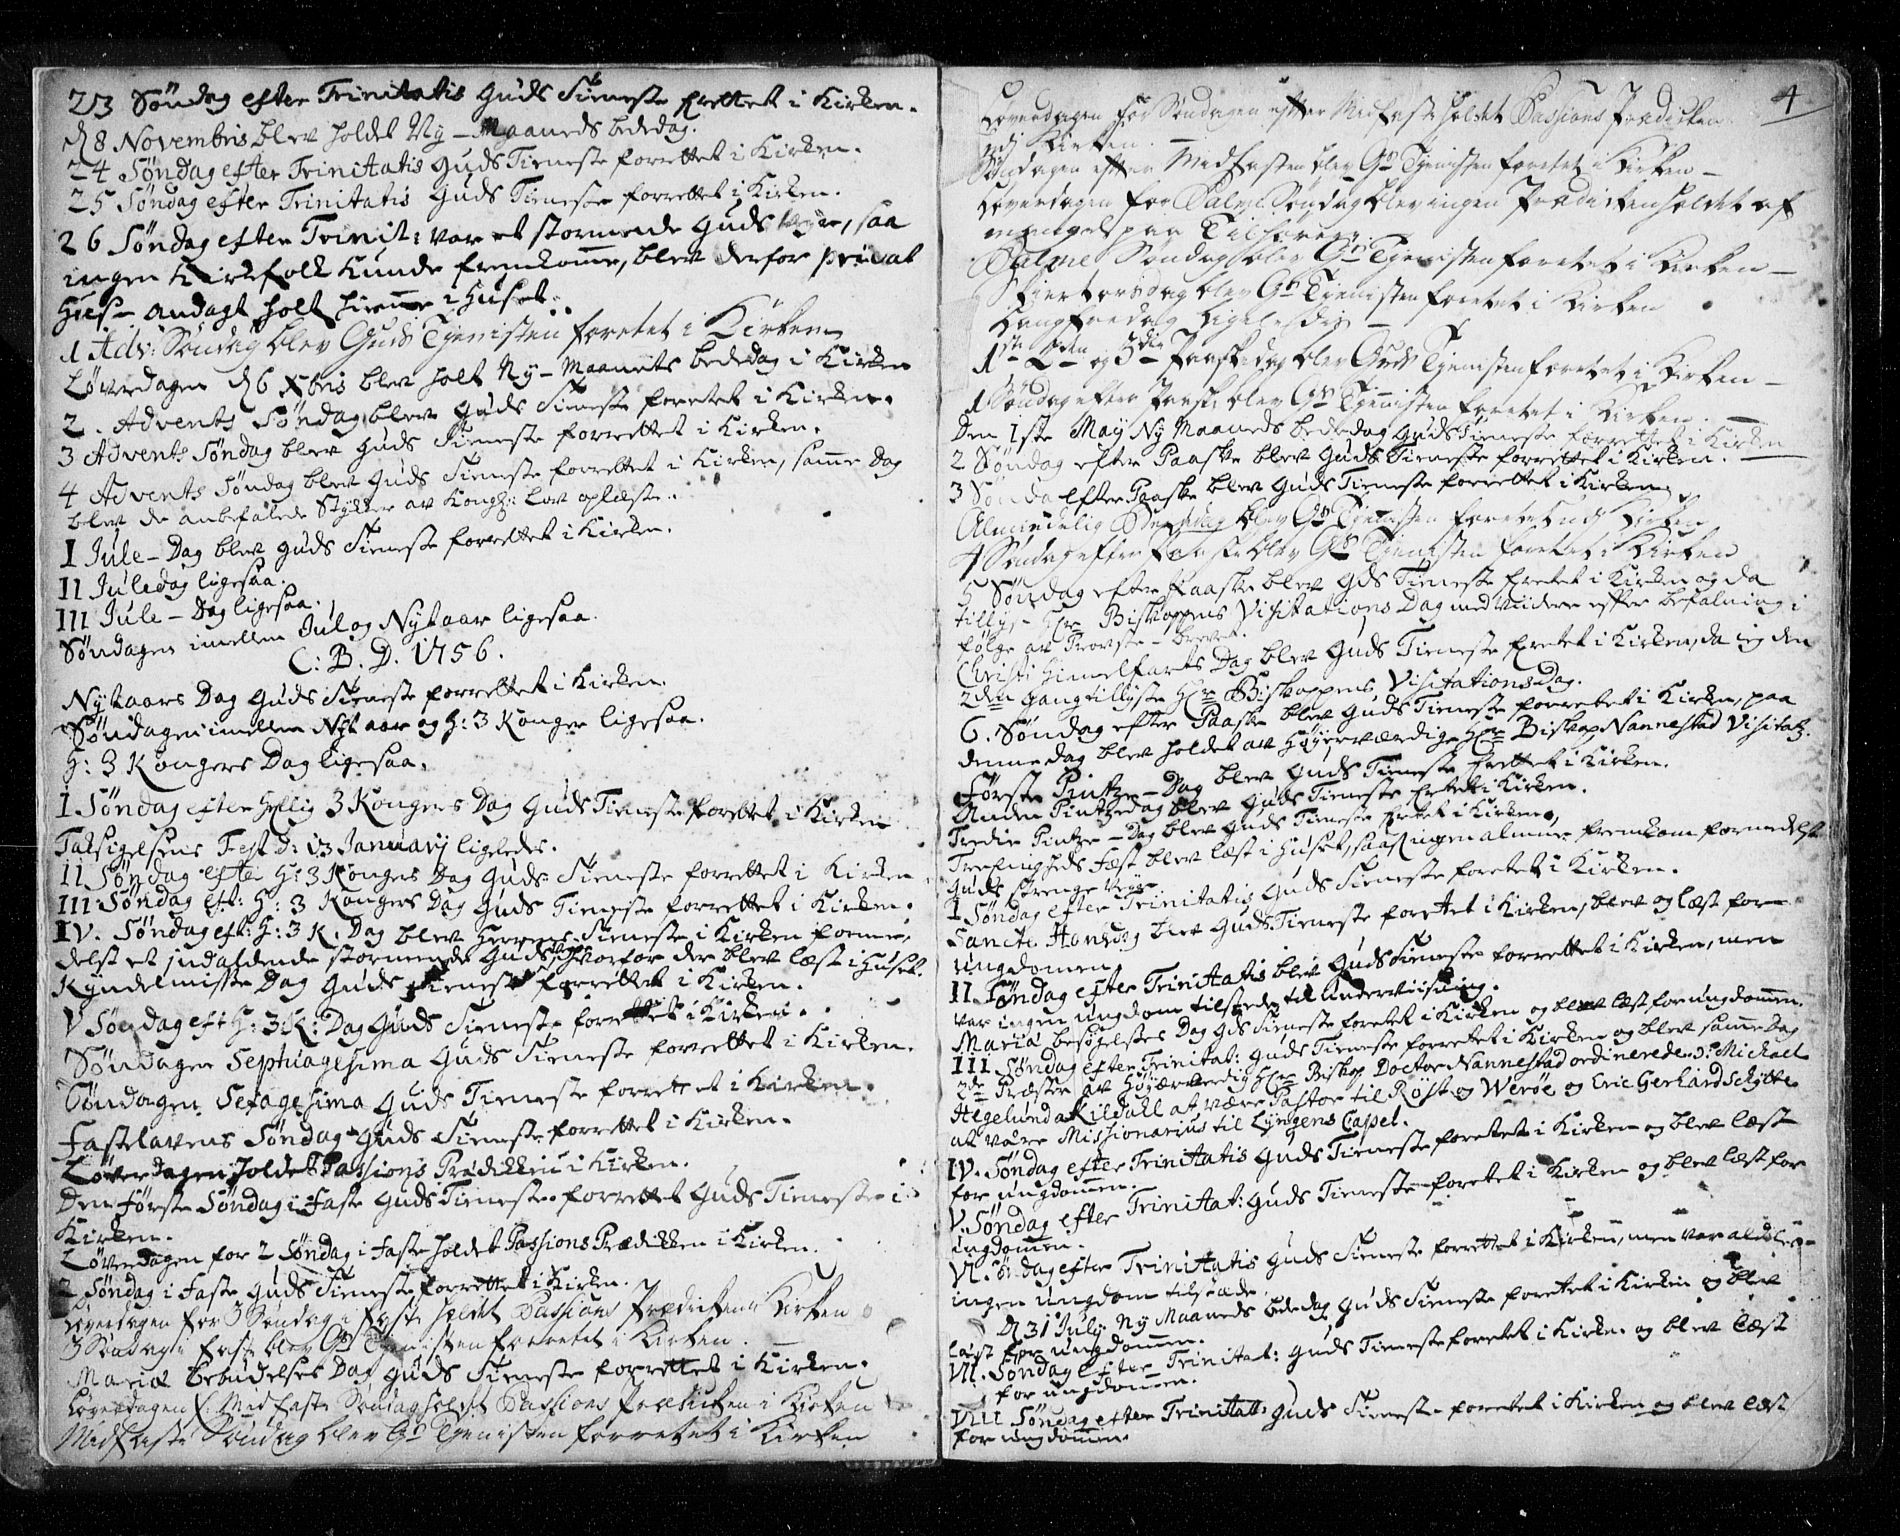 23 Søndag efter Trinitatis Guds Tieneste frettet i Kirken.
d 8 Novembris blev holdt Ny-Maaneds bededag.
24 Søndag efter Trinitatis Guds Tieneste forrettet i Kirken.
25 Søndag efter Trinitatis Guds Tieneste forrettet i Kirken.
26 Søndag efter Trinit: var et stormende Guds veyr, saa
ingen Kirkefolk kunde fremkomme, blev derfor privat
Huus-andagt holt hiemme i Huset.
1 Adv: Søndag blev Guds Tjenisten foretet i Kirken
Løverdagen d 6 Xbris blev holt Ny-Maanets bededag i Kirken
2. Advents Søndag blev Guds Tieneste foretet i Kirken.
3 Advents Søndag blev Guds Tieneste forrettet i Kirken.
4 Advents Søndag blev Guds Tieneste forrettet i Kirken, samme Dag
blev de anbefalede Stykker av Kongl: Lov oplæste.
I Jule-Dag blev Guds Tieneste forrettet i Kirken.
II Juledag ligesaa.
III Jule-Dag ligesaa.
Søndagen imellem Jul og Nytaar ligesaa.
C: B. D. 1756.
Nytaars Dag Guds Tieneste forrettet i Kirken.
Søndagen imellem Nytaar og H: 3 Konger ligesaa.
H: 3 Kongers Dag ligesaa.
I Søndag efter Hellig 3 Kongers Dag Guds Tieneste forettet i Kirken
Taksigelsens Fest d: 13 January ligeledes.
II Søndag efter H: 3 Kongers Dag Guds Tieneste forrettet i Kirken
III Søndag eft: H: 3 Kongers Dag Guds Tieneste forrettet i Kirken.
IV. Søndag eft: H: 3 K. Dag blev Herrens Tieneste i Kirken forme-
delst et indfaldende stormende Guds veyr, hvorfor der blev læst i Huset.
Kyndelmisse Dag Guds Tieneste forrettet i Kirken.
V Søndag eft H: 3 K: Dag Guds Tieneste forrettet i Kirken.
Søndagen Septuagesima Guds Tieneste forrettet i Kirken.
Søndagen Sexagesima Guds Tieneste forrettet i Kirken.
Fastelavens Søndag Guds Tieneste forrettet i Kirken.
Løverdagen holdet Passions Prædikken i Kirken.
Den første Søndag i Faste Guds Tieneste forrettet Guds Tieneste i
Kirken.
Løverdagen for 2 Søndag i Faste holdet Passions Prædikken i Kirken.
2 Søndag i Faste Guds Tieneste forrettet i Kirken.
Løverdagen for 3 Søndag i Faste holdet Passions Prædicken i Kirken
3 Søndag i Faste blev Gds Tjenisten forretet i Kirken.
Mariæ Bebudelses Dag Guds Tieneste forrettet i Kirken.
Løverdagen f. Midfaste Søndag holdet Passions Prædicken i Kirken
Midfaste Søndag blev Gds Tjenisten forretet i Kirken
4
Løverdagen for Søndagen efter Midfaste holdet Passions Prædicken
udj Kirken.
Søndagen efter Midfasten blev Gds Tjenisten foretet i Kirken
Løverdagen for Palme Søndag blev ingen Prædicken holdet af
mangel paa Tilhørere.
Palme Søndag blev Gds Tjenisten foretet i Kirken
Skiertorsdag blev Gds Tjenisten foretet i Kirken
Langfredag ligeledis
1ste 2den og 3die Paaskedag blev Guds Tjenisten foretet i Kirken
1 Søndag efter Paaske blev Gds Tjenisten foretet i Kirken.
Den 1ste May Ny Maaneds bededag Guds Tieneste forrettet i Kirken
2 Søndag efter Paaske blev Guds Tieneste forrettet i Kirken.
3 Sønda efter Paaske blev Guds Tieneste forrettet i Kirken.
Almindelig Bededag blev Gds Tjenisten foretet udj Kirken
4 Søndag efter Paaske blev Gds Tjenisten foretet i Kirken
5 Søndag efter Paaske blev Gds Tieneste fretet i Kirken og da
tillyst Hr Biskoppens Visitations Dag med viidere efter befalning i
følge av Provste-brevet.
Christi Himmelfarts Dag blev Guds Tieneste fretet i Kirken, da ieg den
2den gang tillyste Hr Biskoppens Visitations Dag.
6. Søndag efter Paaske blev Guds Tieneste forretet i Kirken, paa
denne dag blev holdet av Høyærværdige Hr Biskop Nannestad Visitatz.
Første Pintze-Dag blev Guds Tieneste frettet i Kirken.
Anden Pintzedag blev Guds Tieneste fretet i Kirken.
Tredie Pintze-Dag blev Guds Tieneste fretet i Kirken.
Treefnigheds Fest blev læst i Huset, saasom ingen almue fremkom formedelst
Guds strenge Veyr
I Søndag efter Trinitatis Guds Tieneste foretet i Kirken.
Sancte Hansdag blev Guds Tieneste forettet i Kirken, blev og læst for
Ungdomen
II. Søndag efter Trinitatis blev Guds Tieneste forrettet i Kirken, men
var ingen ungdom tilstede til underviisning.
Mariæ besøgelses Dag Gds Tieneste foretet i Kirken og blev læst for ungdommen.
III Søndag efter Trinitat: Guds Tieneste forrettet i Kirken og blev samme Dag
2de Præster av Høyærverdig Hr Biskop Doctor Nannestad ordinerede: Michael
Hegelund Kildall at være Pastor til Røst og Werøe og Eric Gerhard Schytte
at være Missionarius til Lyngens Capel.
IV. Søndag efter Trinitatis Guds Tieneste foretet i Kirken og blev læst
for ungdommen.
V. Søndag efter Trinitat: Guds Tieneste foretet i Kirken og blev læst for
ungdommen.
VI. Søndag efter Trinitatis Guds Tieneste forrettet i Kirken, men var aldeles
ingen ungdom tilstæde.
d 31 July Ny Maaneds bededag Guds Tieneste foretet i Kirken og blev
læst for ungdommen.
VII. Søndag efter Trinitat: Guds Tieneste foretet i Kirken og blev læst
for ungdommen.
VIII Søndag efter Trinitat: Guds Tieneste foretet i Kirken og blev læst
for ungdommen.